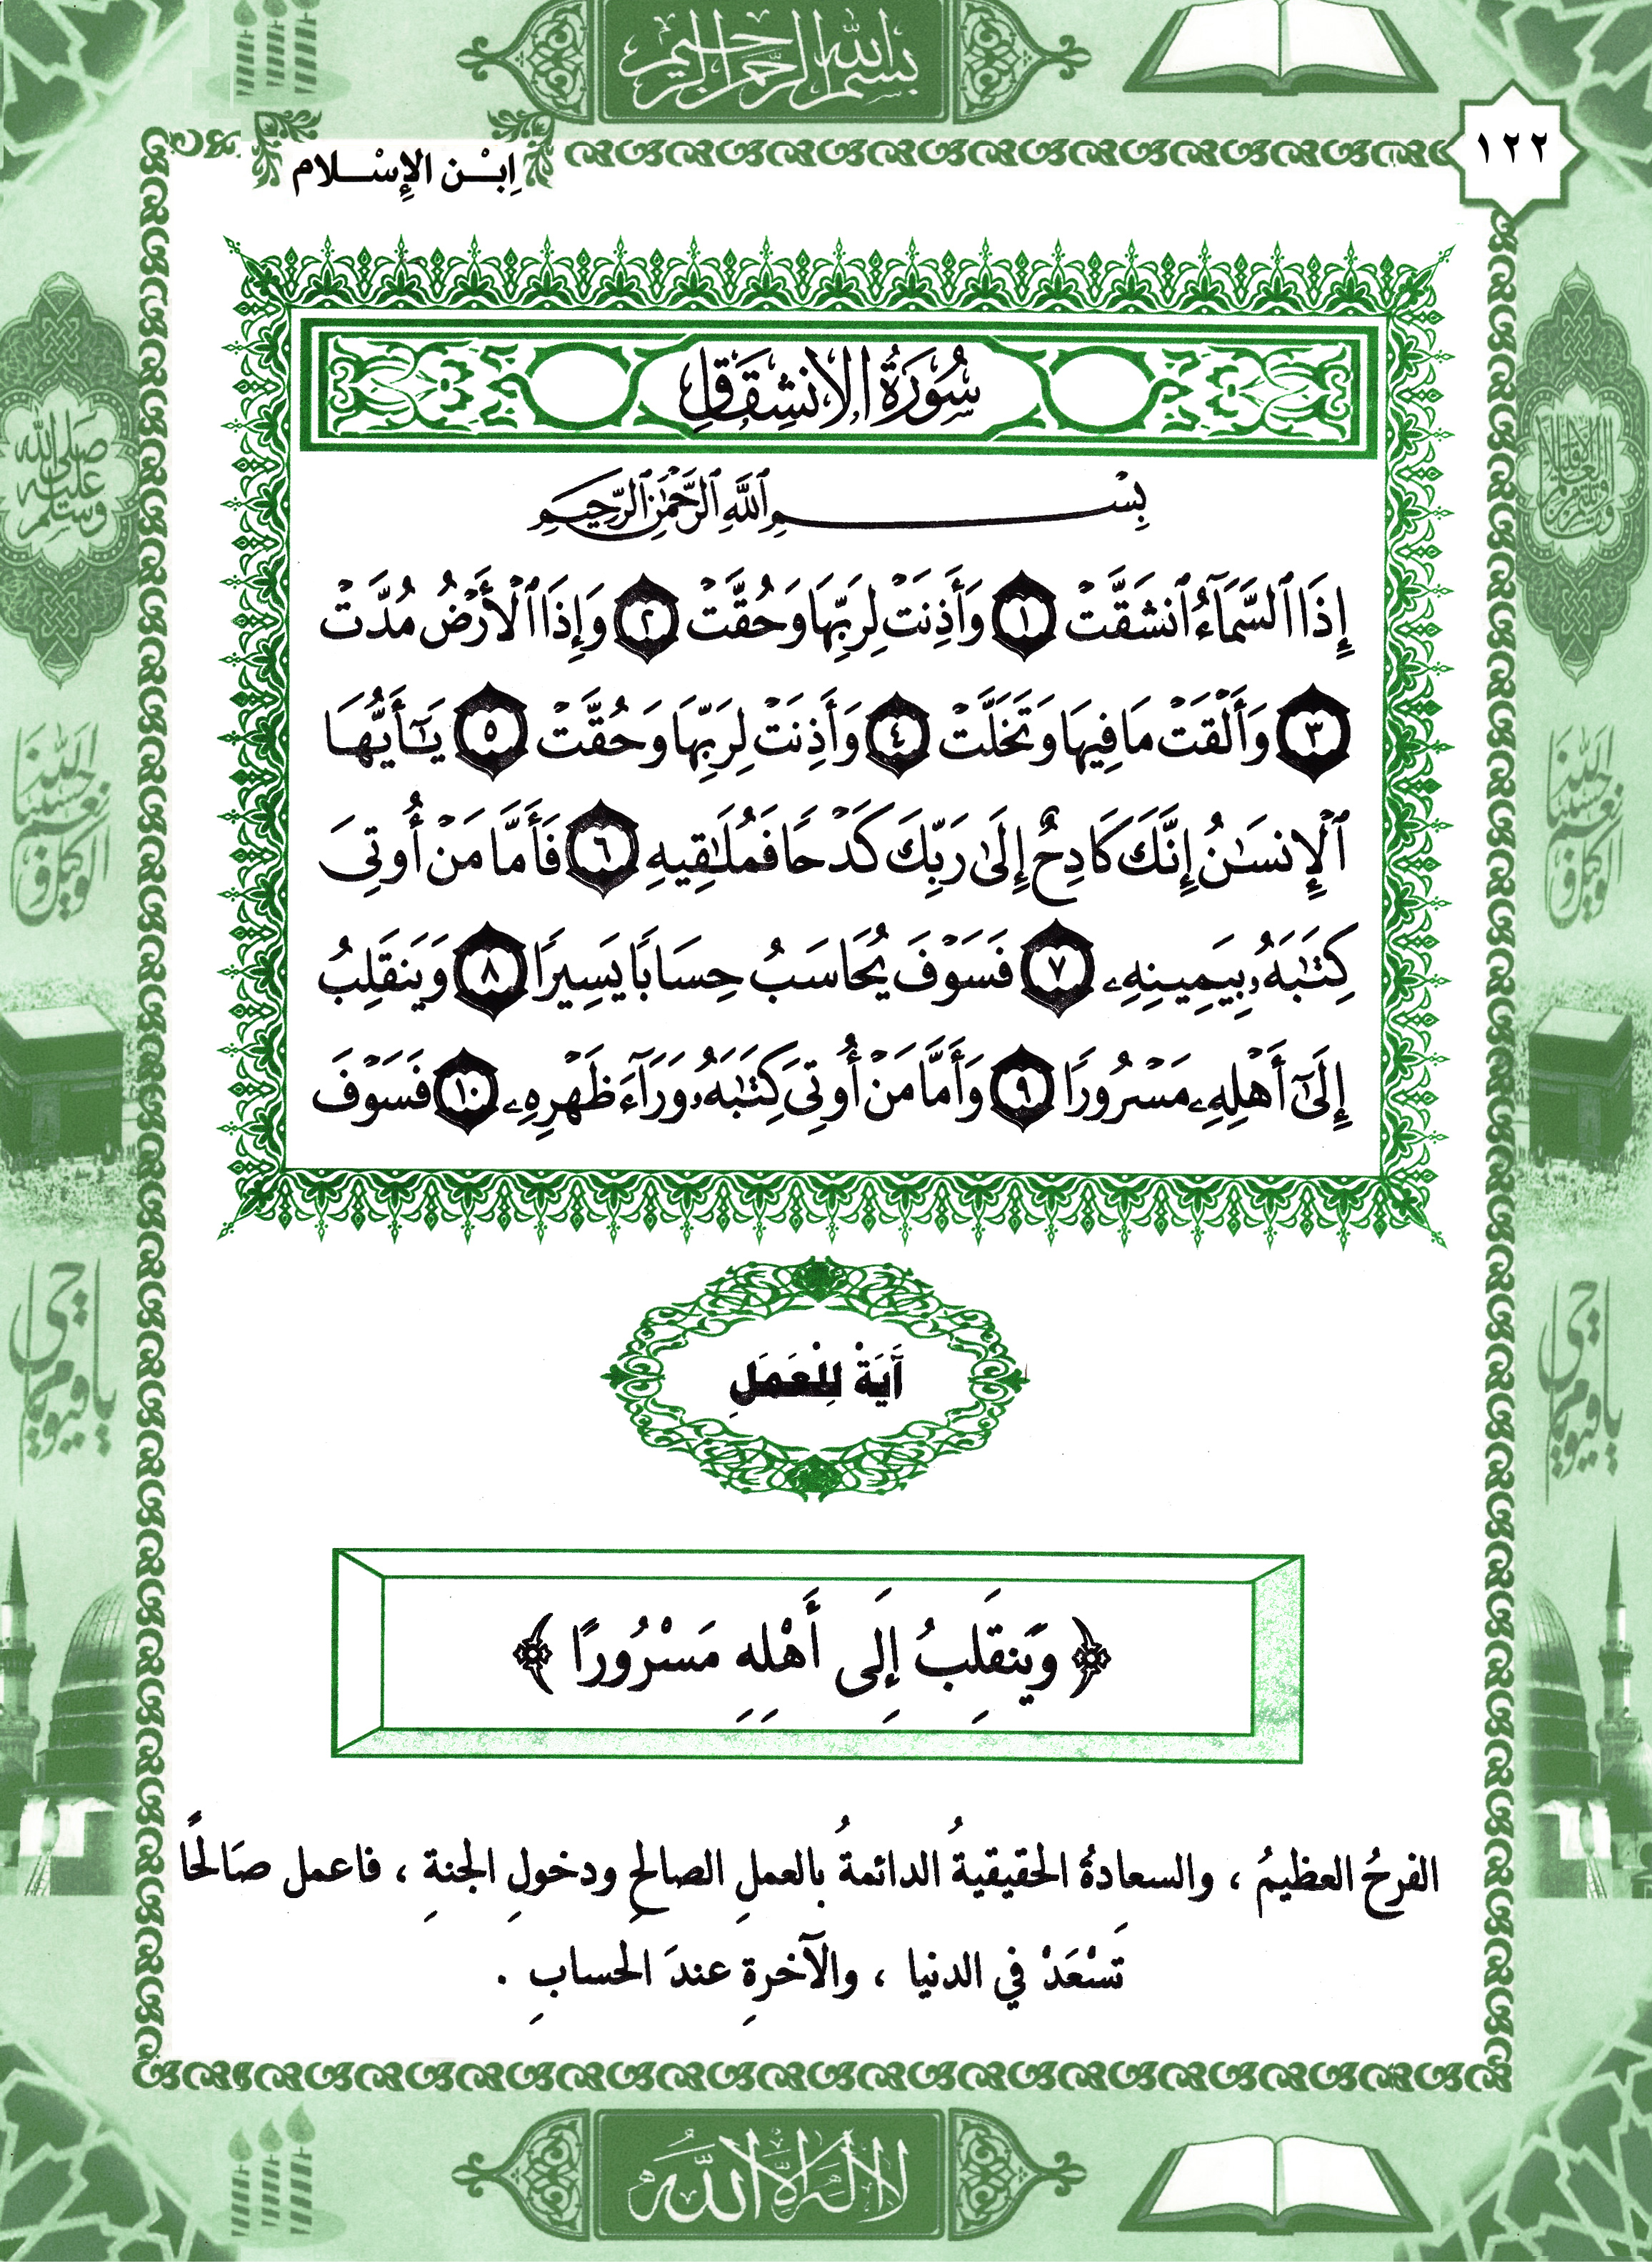 بسم الله الرحمن الرحيم
١٢٢
اِبْـن الإِسْـلام
سُورَةُ الانشِقَاقِ
بِسْمِ ٱللَّهِ ٱلرَّحْمَٰنِ ٱلرَّحِيمِ
إِذَا ٱلسَّمَآءُ ٱنشَقَّتْ ١ وَأَذِنَتْ لِرَبِّهَا وَحُقَّتْ ٢ وَإِذَا ٱلْأَرْضُ مُدَّتْ
٣ وَأَلْقَتْ مَا فِيهَا وَتَخَلَّتْ ٤ وَأَذِنَتْ لِرَبِّهَا وَحُقَّتْ ٥ يَـٰٓأَيُّهَا
ٱلْإِنسَـٰنُ إِنَّكَ كَادِحٌ إِلَىٰ رَبِّكَ كَدْحًا فَمُلَـٰقِيهِ ٦ فَأَمَّا مَنْ أُوتِىَ
كِتَـٰبَهُۥ بِيَمِينِهِۦ ٧ فَسَوْفَ يُحَاسَبُ حِسَابًا يَسِيرًا ٨ وَيَنقَلِبُ
إِلَىٰٓ أَهْلِهِۦ مَسْرُورًا ٩ وَأَمَّا مَنْ أُوتِىَ كِتَـٰبَهُۥ وَرَآءَ ظَهْرِهِۦ ١٠ فَسَوْفَ
آَيَةْ لِلْعَمَلِ
﴿ وَيَنقَلِبُ إِلَى أَهْلِهِ مَسْرُورًا ﴾
الفرحُ العظيمُ ، والسعادةُ الحقيقيةُ الدائمةُ بالعملِ الصالحِ ودخولِ الجنةِ ، فاعمل صَالحًا
تَسْعَدْ في الدنيا ، والآخرةِ عندَ الحسابِ .
صلى الله عليه وسلم
حسبنا الله ونعم الوكيل
حسبنا الله ونعم الوكيل
يا حي يا قيوم
يا حي يا قيوم
لا اله الا الله